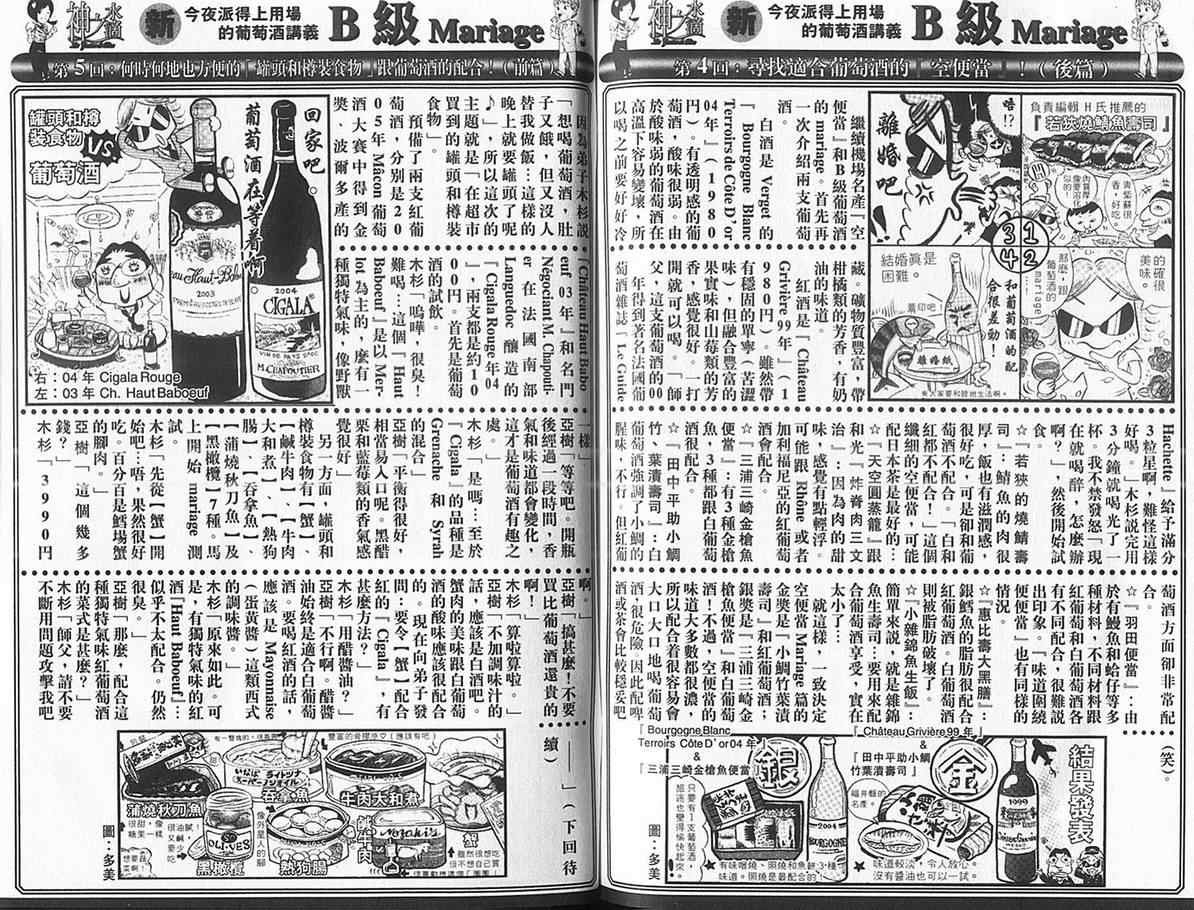 神之水滴
新
今夜派得上用場
的葡萄酒講義
B級 Mariage
第4回：尋找適合葡萄酒的「空便當」！(後篇)
負責編輯H氏推薦的
『若狹燒鯖魚壽司』
青紫蘇很
香，好吃。
唔!?
離婚吧
的確很
美味。
那麼，跟
葡萄酒的
mariage
3 1
4 2
和葡萄酒的配
合很差勁！
結婚真是
困難。
蓋印吧！
離婚紙
繼續機場名產『空
便當』和B級葡萄酒
的mariage。首先再
一次介紹兩支葡萄
酒。
白酒是 Verget 的
『Bourgogne Blanc
Terroirs de Côte D'or
04年』(1980
円)。有透明感的葡
萄酒，酸味很弱。由
於酸味弱的葡萄酒在
高溫下容易變壞，所
以喝之前要好好冷
藏。礦物質豐富，帶
柑橘類的芳香，有奶
油的味道。
紅酒是『Château
Grivière 99年』(1
980円)。雖然帶
有穩固的單寧(苦澀
味)，但融合豐富的
果實味和山莓類的芳
香，感覺很好。一打
開就可以喝。「師
父，這支葡萄酒的00
年得到著名法國葡
萄酒雜誌「Le Guide
Hachette」給予滿分
3粒星啊，難怪這樣
好喝。」木杉說完用
3分鐘就喝光了一
杯。我不禁發怒「現
在就喝醉，怎麼辦
啊？」，然後開始試
食。
☆『若狹的燒鯖壽
司』：鯖魚的肉很
厚，飯也有滋潤感，
很好吃，可是卻和葡
紅都不配合！這個
纖細的空便當，可能
配日本茶是最好的。
☆『天空圓蒸籠』跟
和光『炸脊肉三文
治』：因為肉的甜
味，感覺有點輕浮。
可能跟 Rhône 或者
加利福尼亞的紅葡萄
酒會配合。
☆『三浦三崎金槍魚
便當』：有3種金槍
魚，3種都跟白葡萄
酒很配合。
☆『田中平助小鯛
竹、葉漬壽司』：白
葡萄酒強調了小鯛的
腥味，不行。但紅葡
萄酒方面卻非常配
合。
☆『羽田便當』：由
於有鰻魚和蛤仔等多
種材料，不同材料跟
紅葡萄和白葡萄酒各
有不同配合，很難說
出印象。「味道圍繞
便便當」也有同樣的
情況。
☆『惠比壽大黑膳』：
銀鱈魚的脂肪很配合
紅葡萄酒。白葡萄酒
則被脂肪破壞了。
☆『小雜錦魚生飯』：
簡單來說，就是雜錦
魚生壽司…要用來配
合葡萄酒享受，實在
太小了…
就這樣，一致決定
空便當 Mariage 篇的
金獎是『小鯛竹葉漬
壽司』和紅葡萄酒；
銀獎是『三浦三崎金
槍魚便當』和白葡萄
酒！不過，空便當的
味道大多數都很濃，
所以配合着很容易會
大口大口地喝葡萄
酒，很危險。因此配啤
酒或茶會比較穩妥吧
(笑)。
結果發表
「Château Grivière 99 年」
&
「田中平助小鯛
竹葉漬壽司」
金
福井縣的
名產。
1999
★味道較淡，令人放心。
沒有醬油也可以一試。
「Bourgogne Blanc
Terroirs Côte D'or 04 年」
&
「三浦三崎金槍魚便當」
銀
只要有1支葡萄酒，
旅途也變得愉快起來。
2004
BOURGOGNE
★有味噌燒、照燒和魚餅3種
味道。照燒是最配合的！
圖：多美
神之水滴
新
今夜派得上用場
的葡萄酒講義
B級 Mariage
第5回：何時何地也方便的「罐頭和樽裝食物」跟葡萄酒的配合！(前篇)
回家吧。
葡萄酒在等着你啊
罐頭和樽
裝食物
VS
葡萄酒
2003
2004
CIGALA
VIN DE PAYS D'OC
M.CHAPOUTIER
右：04 年 Cigala Rouge
左：03 年 Ch. Haut Baboeuf
因為弟子木杉說
「想喝葡萄酒，肚
子又餓，但又沒人
替我做飯…這樣的
晚上就要罐頭了呢
♪」，所以這次的
主題就是「在超市
買到的罐頭和樽裝
食物」。
預備了兩支紅葡
萄酒，分別是20
05年 Mâcon 葡萄
酒大賽中得到金
獎、波爾多產的
『Château Haut Babo
euf 03年』和名門
Négociant M. Chapouti-
er 在法國南部
Languedoc 釀造的
『Cigala Rouge 年04
』，兩支都是約10
00円。首先是葡萄
酒的試飲。
木杉「嗚嘩，很臭！
難喝…這個『Haut
Baboeuf』是以 Mer-
lot 為主的，麼有一
種獨特氣味，像野獸
一樣」
亞樹「等等吧。開瓶
後經過一段時間，香
氣和味道都會變化，
這才是葡萄酒有趣之
處。」
木杉「是嗎…至於
『Cigala』的品種是
Grenache 和 Syrah
的混合」
亞樹「平衡得很好，
相當易入口呢。黑醋
栗和藍莓類的香氣感
覺很好」
另一方面，罐頭和
樽裝食物有【蟹】、
【鹹牛肉】、【牛肉
大和煮】、【熱狗
腸】、【吞拿魚】、
【蒲燒秋刀魚】及
【黑橄欖】7種。馬
上開始 mariage 測
試。
木杉「先從【蟹】開
始吧…唔，果然很好
吃。百分百是鱈場蟹
的腳肉。」
亞樹「這個幾多
錢？」
木杉「3990円
啊。」
亞樹「搞甚麼！不要
買比葡萄酒還貴的
啊！」
木杉「算啦算啦。」
亞樹「不加調味汁的
話，應該是白酒吧。
蟹肉的美味跟白葡萄
酒的酸味應該很配合
的。現在向弟子發
問：要令【蟹】配合
紅的『Cigala』，有
甚麼方法？」
木杉「用醋醬油？」
亞樹「不行啊。醋醬
油始終是適合白葡萄
酒。要喝紅酒的話，
應該是 Mayonnaise
(蛋黃醬)這類西式
的調味醬。」
木杉「原來如此。可
是，有獨特氣味的紅
酒『Haut Baboeuf』…
似乎不太配合。仍然
很臭。」
亞樹「那麼，配合這
種獨特氣味紅葡萄酒
的菜式是甚麼？」
木杉「師父，請不要
不斷用問題攻擊我吧
——」(下回待
續)
豐富的骨膠原♡(應該有吧)
蒲燒秋刀魚
很甜，像
糖果一樣
ライトツナ
吞拿魚
牛肉大和煮
OLIVES
黑橄欖
很油膩！
又鹹少
要吃
像外星人的腳
熱狗腸
鹹牛肉
Nozaki's
蟹
圖：多美